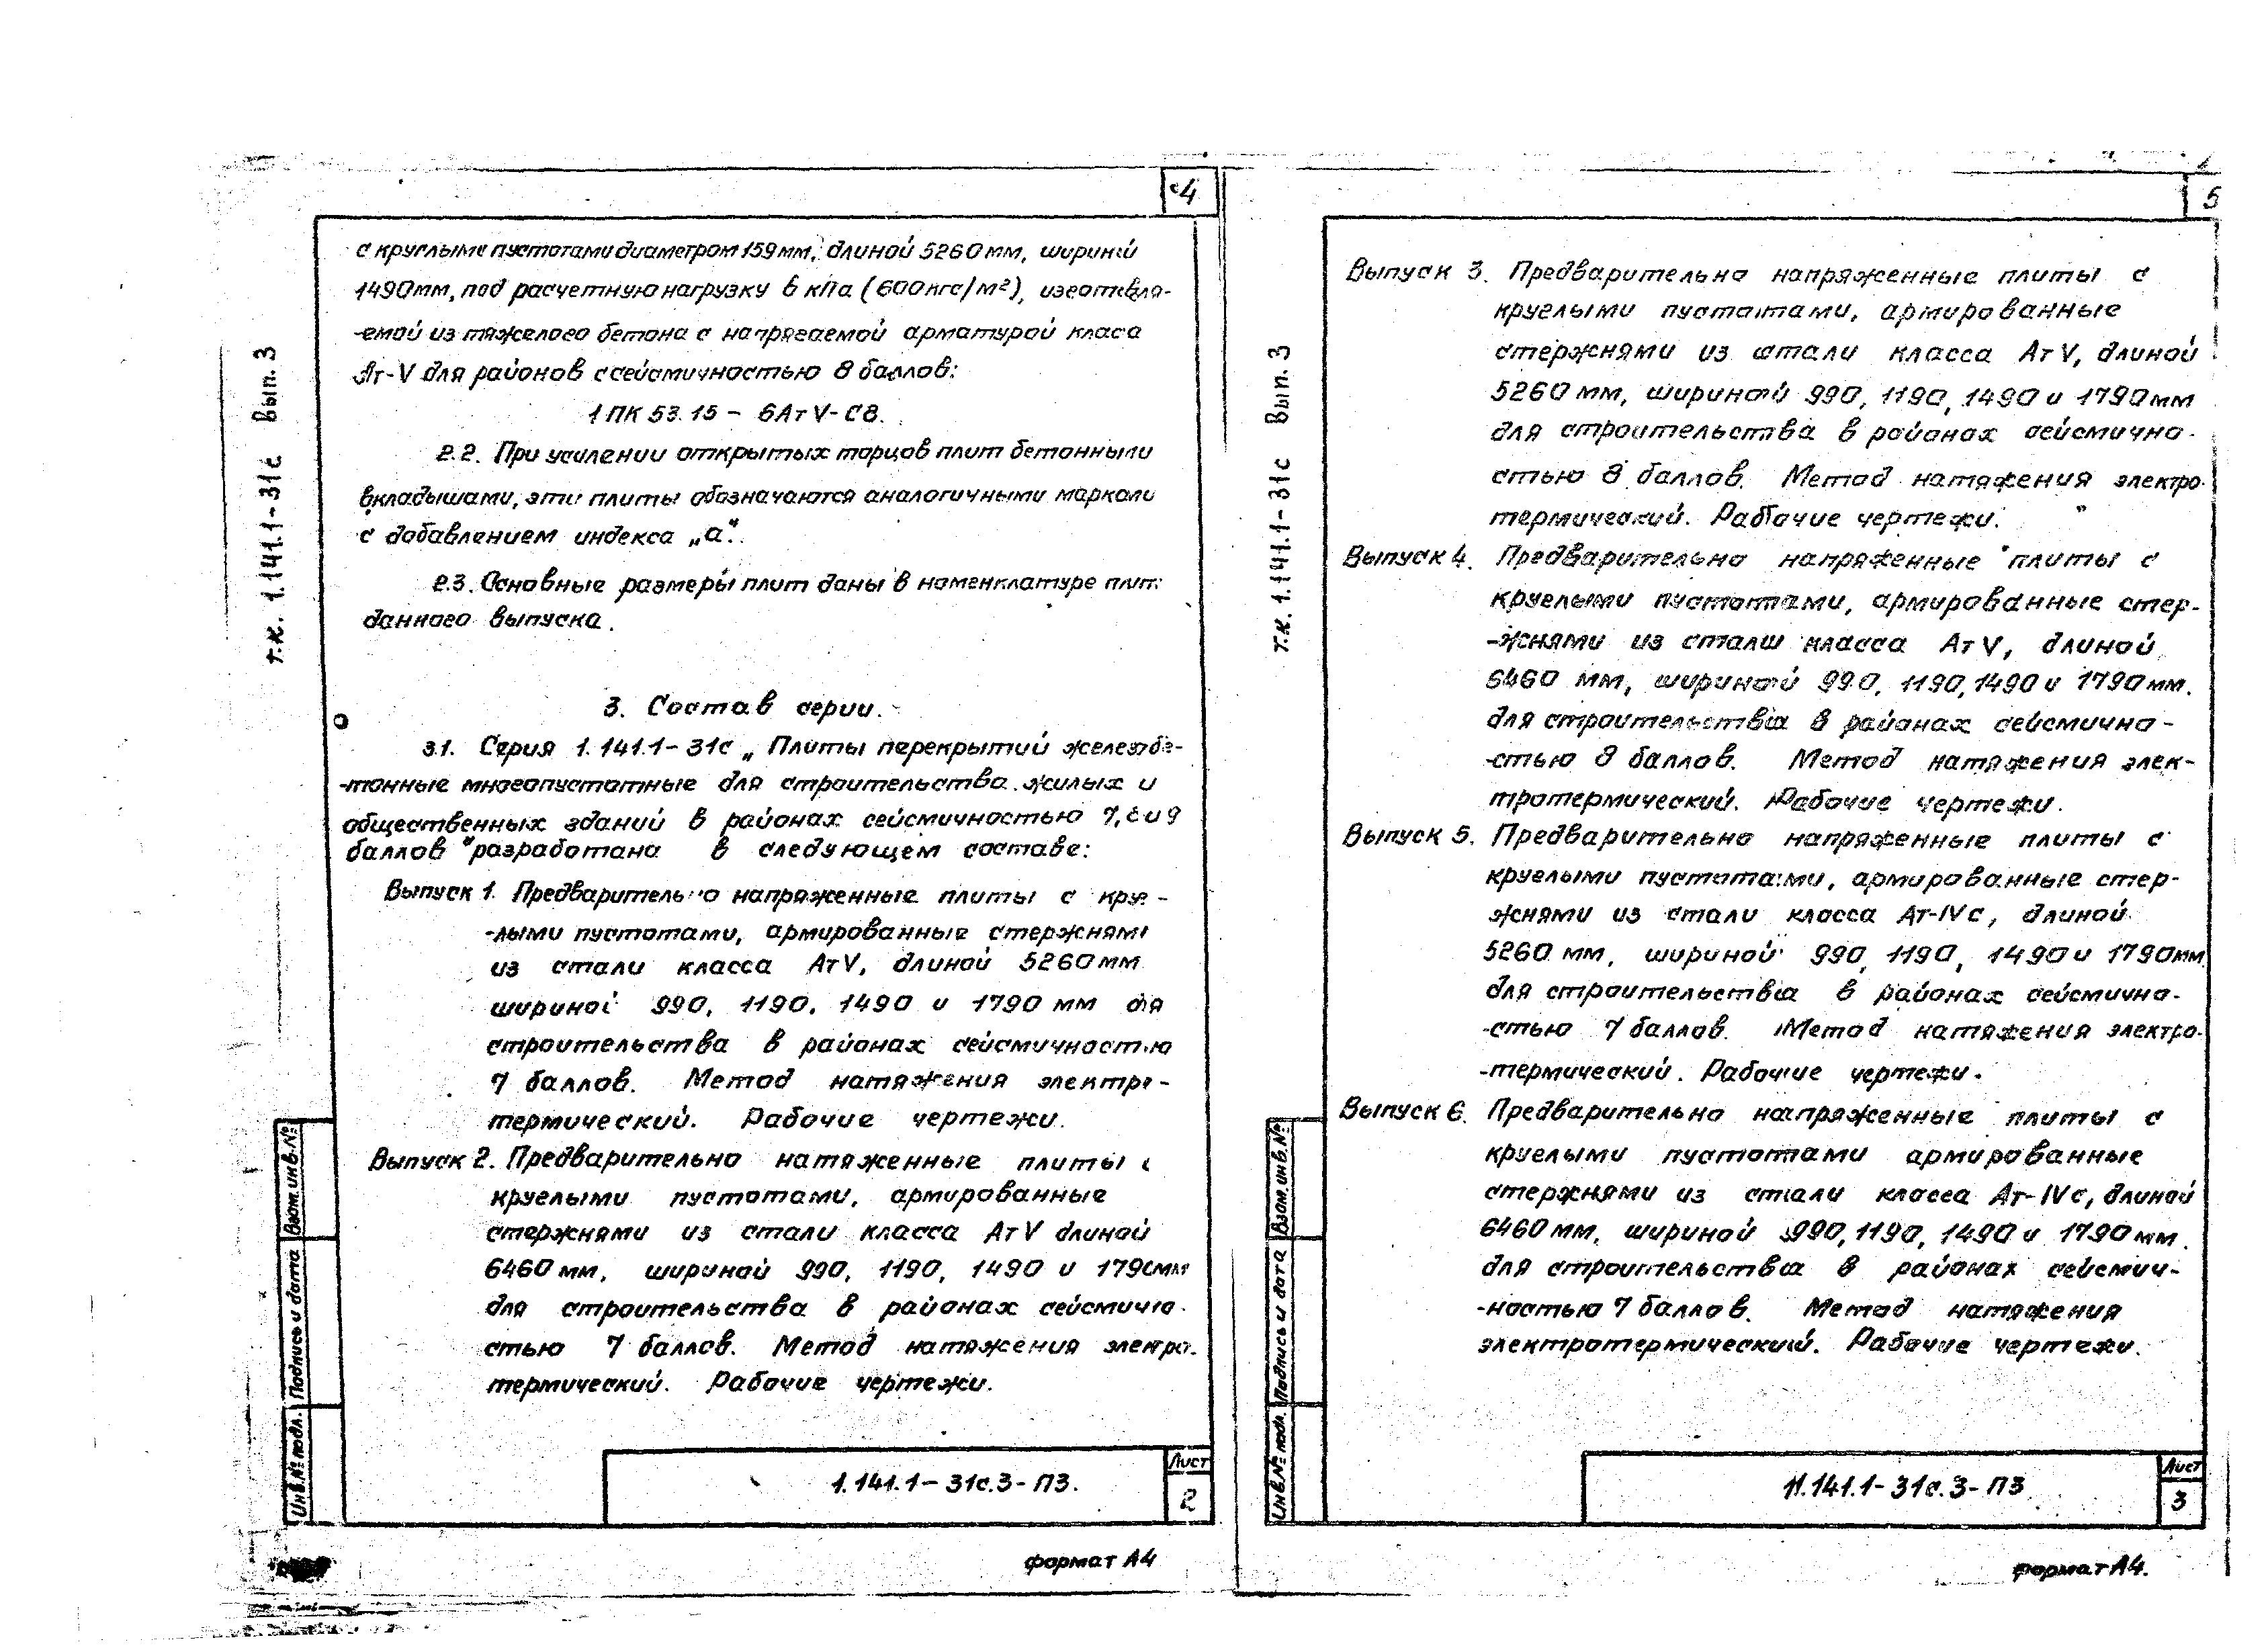 4
с круглыми пустотами диаметром 159мм, длиной 5260мм, шириной
1490мм, под расчетную нагрузку 6 кПа (600кгс/м²), изготовля-
-емой из тяжелого бетона с напрягаемой арматурой класа
Ат-V для районов с сейсмичностью 8 баллов:
1ПК 53.15 - 6АтV-С8.
2.2. При усилении открытых торцов плит бетонными
вкладышами, эти плиты обозначаются аналогичными марками
с добавлением индекса „а".
2.3. Основные размеры плит даны в номенклатуре плит
данного выпуска.
3. Состав серии.
3.1. Серия 1.141.1-31с „Плиты перекрытий железобе-
-тонные многопустотные для строительства жилых и
общественных зданий в районах сейсмичностью 7,8 и 9
баллов" разработана в следующем составе:
Выпуск 1. Предварительно напряженные плиты с круг-
-лыми пустотами, армированные стержнями
из стали класса АтV, длиной 5260мм
шириной 990, 1190, 1490 и 1790 мм для
строительства в районах сейсмичностью
7 баллов. Метод натяжения электро-
термический. Рабочие чертежи.
Выпуск 2. Предварительно натяженные плиты с
круглыми пустотами, армированные
стержнями из стали класса АтV длиной
6460мм, шириной 990, 1190, 1490 и 1790мм
для строительства в районах сейсмично-
стью 7 баллов. Метод натяжения электро-
термический. Рабочие чертежи.
т.к. 1.141.1-31с Вып. 3
Взам.инв.№
Подпись и дата
Инв.№ подл.
1.141.1-31с.3-ПЗ.
Лист
2
формат А4
5
Выпуск 3. Предварительно напряженные плиты с
круглыми пустотами, армированные
стержнями из стали класса АтV, длиной
5260мм, шириной 990, 1190, 1490 и 1790мм
для строительства в районах сейсмично-
стью 8 баллов. Метод натяжения электро-
термический. Рабочие чертежи.
Выпуск 4. Предварительно напряженные плиты с
круглыми пустотами, армированные стер-
-жнями из стали класса АтV, длиной
6460 мм, шириной 990, 1190, 1490 и 1790мм.
для строительства в районах сейсмично-
-стью 8 баллов. Метод натяжения элек-
тротермический. Рабочие чертежи.
Выпуск 5. Предварительно напряженные плиты с
круглыми пустотами, армированные стер-
жнями из стали класса Ат-IVс, длиной
5260 мм, шириной 990, 1190, 1490 и 1790мм
для строительства в районах сейсмично-
-стью 7 баллов. Метод натяжения электро-
-термический. Рабочие чертежи.
Выпуск 6. Предварительно напряженные плиты с
круглыми пустотами армированные
стержнями из стали класса Ат-IVс, длиной
6460мм, шириной 990, 1190, 1490 и 1790мм.
для строительства в районах сейсмич-
-ностью 7 баллов. Метод натяжения
электротермический. Рабочие чертежи.
т.к. 1.141.1-31с Вып. 3
Взам.инв.№
Подпись и дата
Инв.№ подл.
1.141.1-31с.3-ПЗ
Лист
3
формат А4.